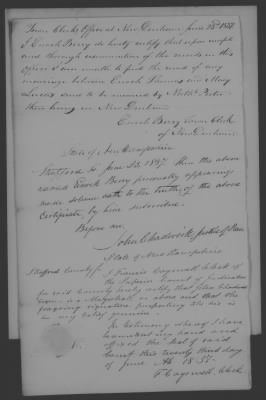 Town Clerks Office at New Durham June 12th 1837
I Enoch Berry do hereby certify that upon
and thorough examination of the records in this
Office I am unable to find the record of any
marriage between Enoch Thomas and Mary
said to be married by
then living in New Durham
Enoch Berry Town Clerk
of New Durham
State of New Hampshire
Strafford ss June 12. 1837. then the above
named Enoch Berry personally appearing
made solemn oath to the truth of the above
Certificate by him subscribed.
Before me,
John Chadwick Justice of Peace
State of New Hampshire
Strafford County ss I Francis Cogswell Clerk of
the Superior Court of Judicature
for said County hereby certify that John Chadwick
Esquire is a Magistrate as above and that the
foregoing signature purporting to be his is
in my belief genuine.
In testimony whereof I have
hereunto set my hand and
affixed the seal of said
Court this twenty third day
of June AD 1837
F Cogswell Clerk